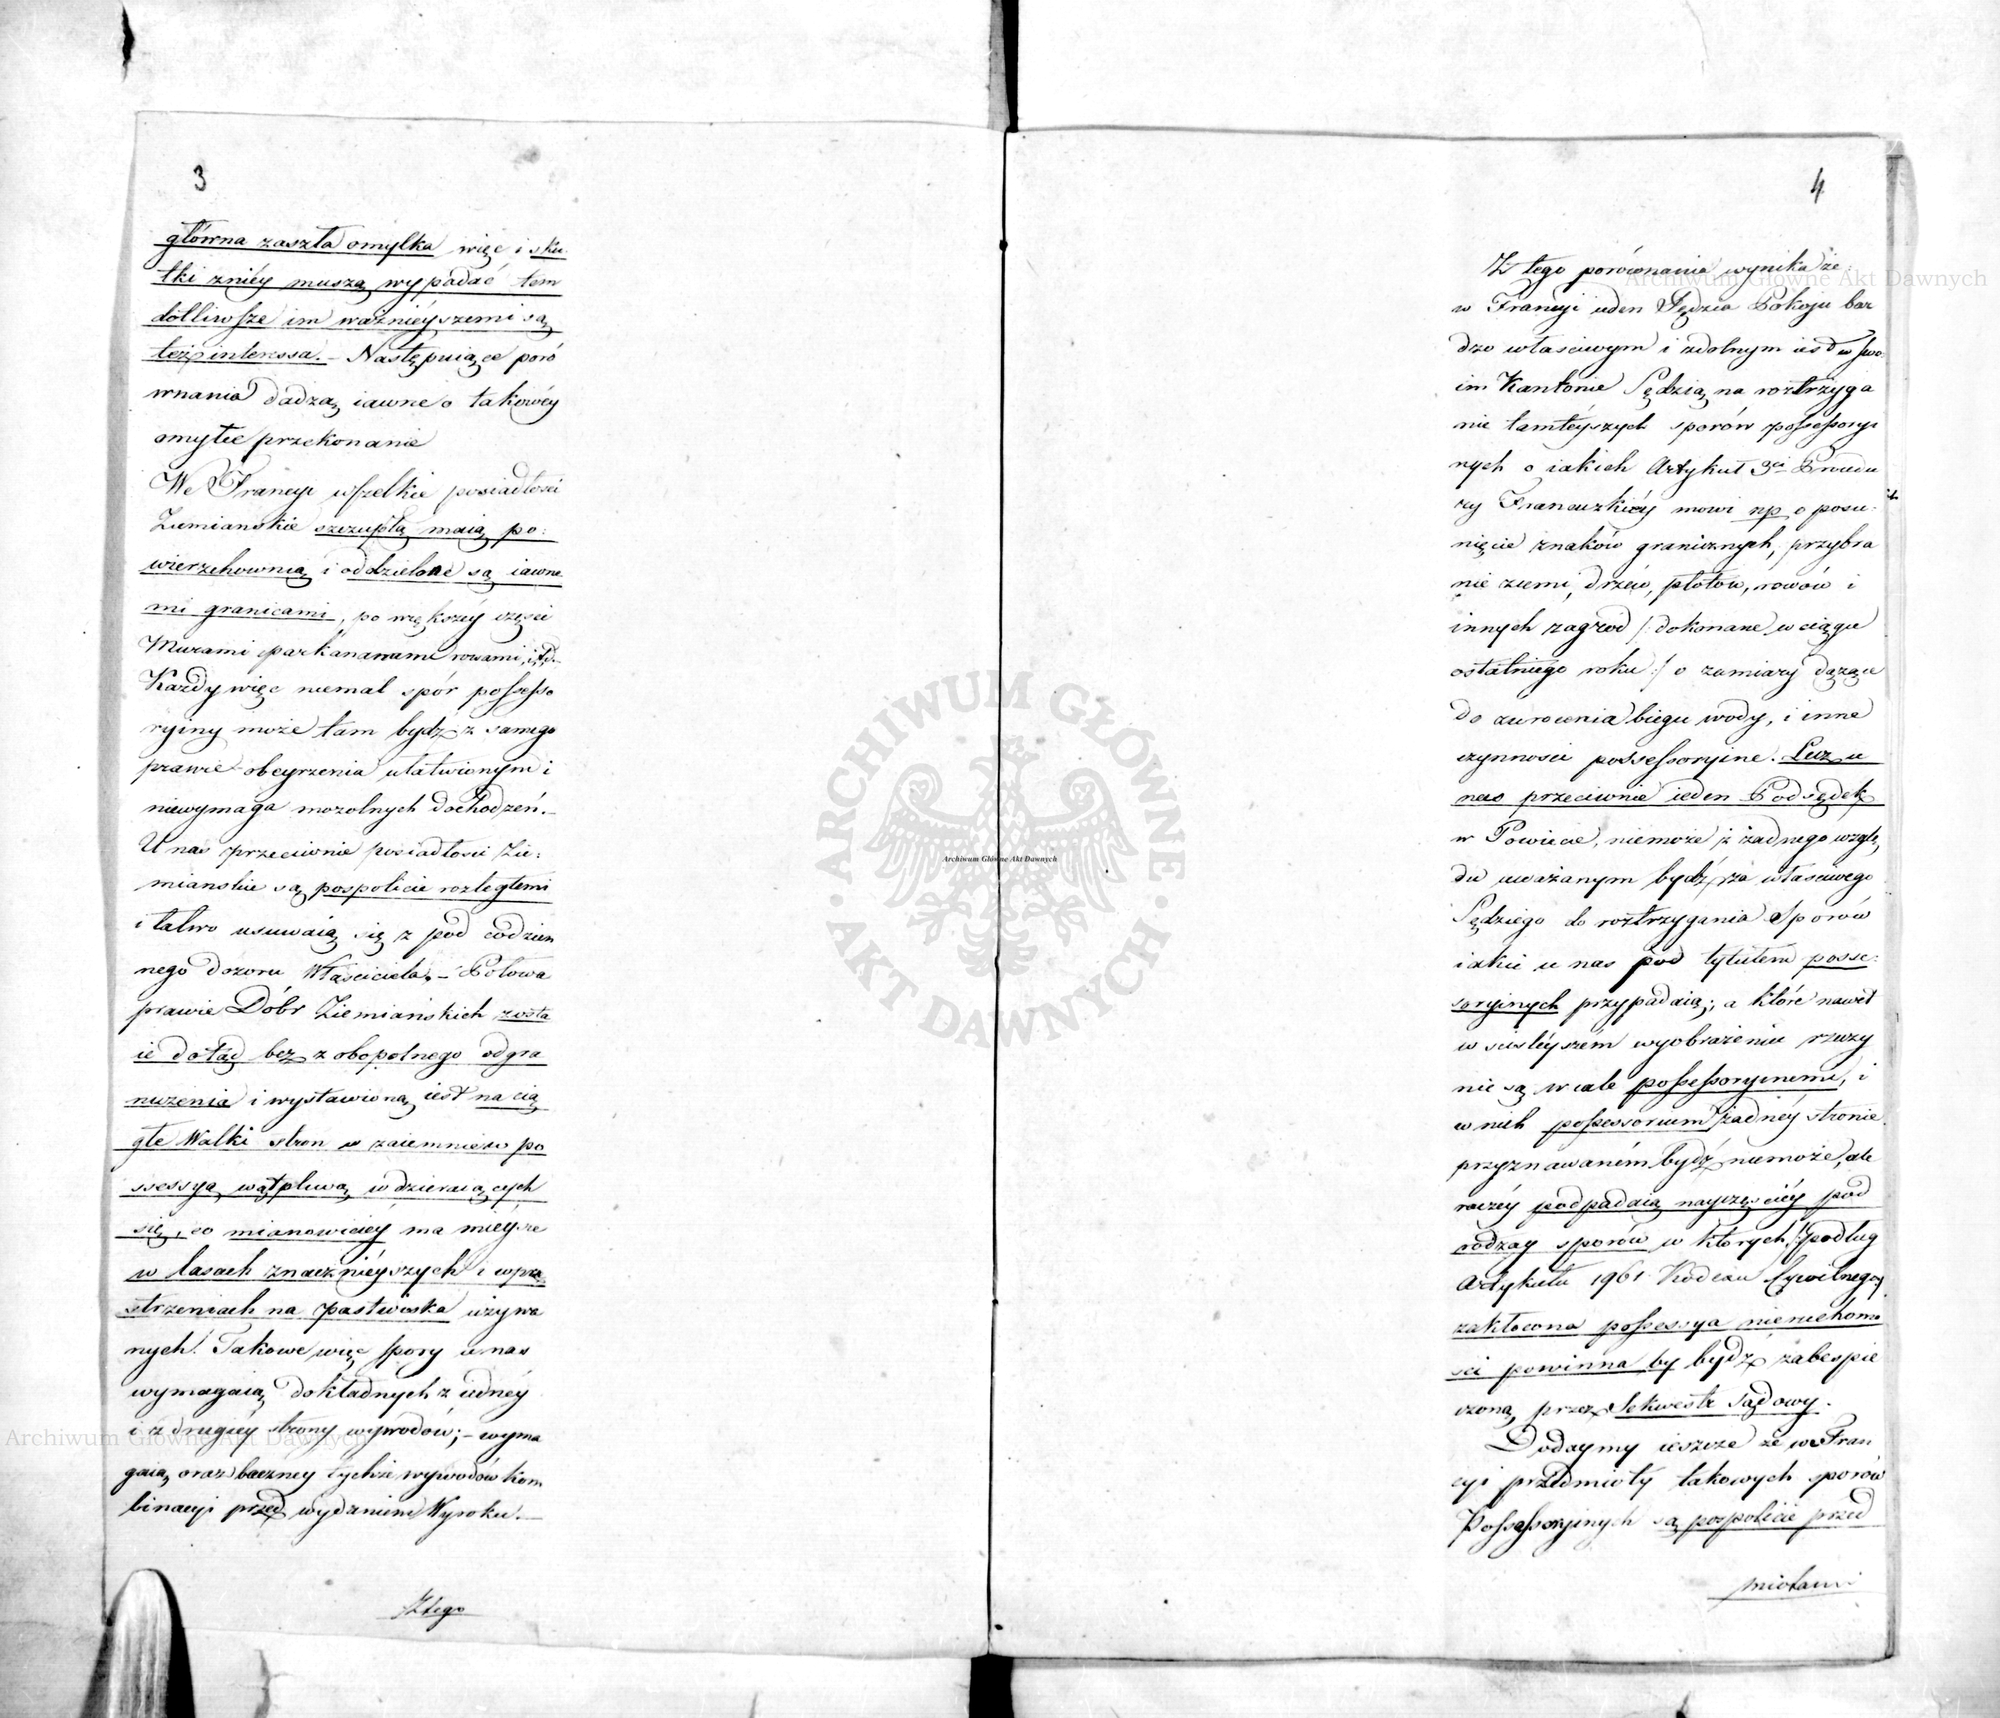 3
główna zaszła omyłka więc i sku
tki zniéy muszą wypadać tem
dolliwsze im ważnieyszemi są
też interessa. – Następuiące poró
wnania dadzą iawne o takowéy
omyłce przekonanie
We Francyi wszelkie posiadłości
Ziemianskie szczupłą maią po:
wierzchownią i oddzielone są iawne
mi granicami, po większéy części
Murami parkanamami rowami, i, t, d.–
Każdy więc niemal spór possesso
ryiny może tam bydź z samego
prawie obeyrzenia ułatwionym i
niewymaga mozolnych dochodzeń.–
U nas przeciwnie posiadłości Zie:
mianskie są pospolicie rozległemi
i łatwo usuwaią się z pod codzien
nego dozoru Właściciela. – Połowa
prawie Dóbr Ziemiańskich zosta
ie dotąd bez z obopolnego odgra
niczenia i wystawioną iest na cią
głe Walki stron w zaiemnie w po
ssessyą wątpliwą wdzieraiących
się, co mianowiciey ma mieysce
w lasach znacznieyszych i w prze
strzeniach na pastwiska używa
nych. Takowe więc spory u nas
wymagaią dokładnych z iednéy
i z drugiéy strony wywodów; – wyma
gaią oraz baczney tychże wywodów kom
binacyi przed wydaniem Wyroku. –
Z tego
4
Z tego porównania wynika że:
w Francyi ieden Sędzia Pokoju bar
dzo właściwym i zdolnym iest w swo:
im Kantonie Sędzią na roztrzyga
nie tamtéyszych sporów possessoryi
nych o iakich Artykuł 3ci Procedu
ry Francuzkiéy mowi np o posu:
nięcie znaków granicznych, przybra
nie ziemi, drzew, płotow, rowów i
innych zagrod /: dokonane w ciągu
ostatniego roku :/ o zamiary dążące
do zwrocenia biegu wody, i inne
czynności possessoryine. Lecz u
nas przeciwnie ieden Podsędek
w Powiecie, niemoże z żadnego wzglę
du uważanym bydź za właściwego
Sędziego do roztrzygania Sporów
iakie u nas pod tytułem posse:
soryinych przypadaią; a które nawet
w ściśleyszém wyobrażeniu rzeczy
nie są wcale possessoryinemi, i
w nich possessorium żadnéy stronie
przyznawaném bydź niemoże, ale
raczéy podpadaią nayczęściéy pod
rodzay sporów w których /: podług
Artykułu 1961 Kodexu Cywilnego :/
zakłócona possessya nieruchomo
ści powinna by bydź zabespie
czoną przez Sekwestr Sądowy.
Dodaymy ieszcze że w Fran
cyi przedmioty takowych sporów
Possessoryinych są pospolicie przed
miotami
Archiwum Główne Akt Dawnych
Archiwum Główne Akt Dawnych
Archiwum Główne Akt Dawnych
ARCHIWUM GŁÓWNE · AKT DAWNYCH ·